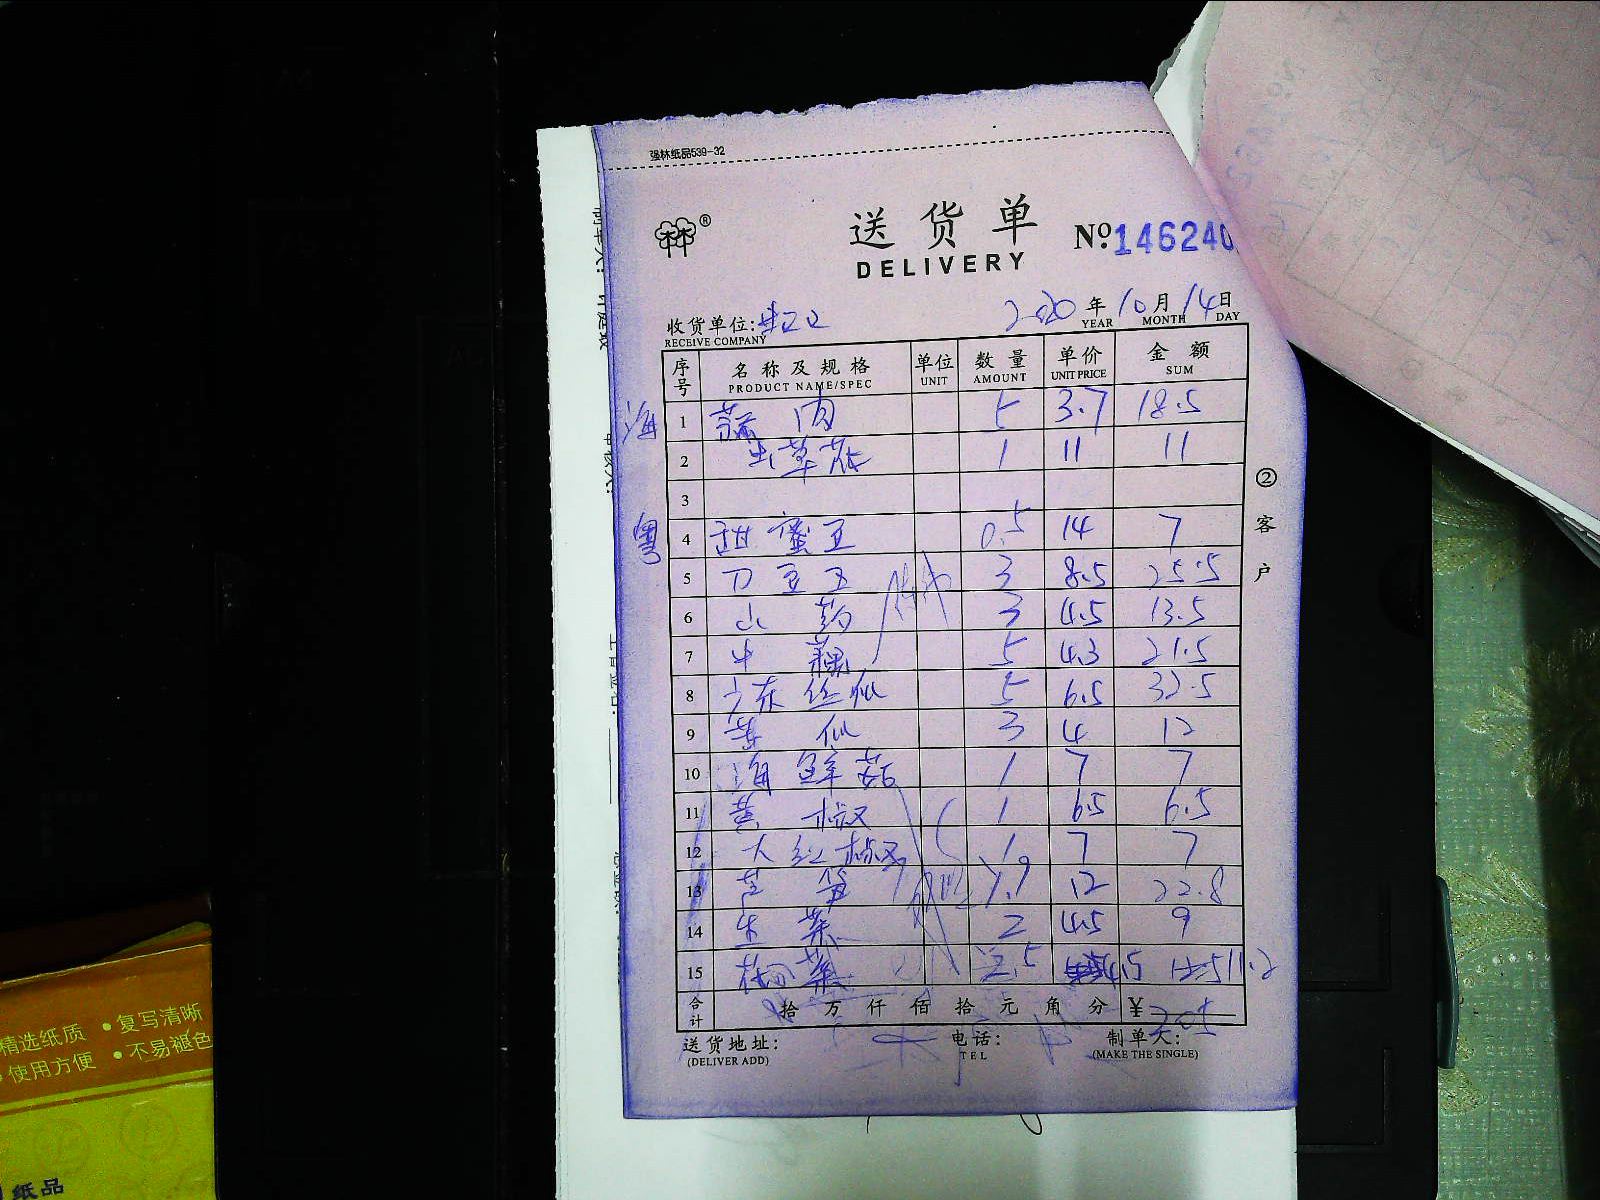 强林纸品539-32
送货单
DELIVERY
®
№146240
收货单位:
RECEIVE COMPANY
2020年10月14日
YEAR MONTH DAY
序号 名称及规格 单位 数量 单价 金额
PRODUCT NAME/SPEC UNIT AMOUNT UNIT PRICE SUM
海 1 肉 5 3.7 18.5
2 虫草花 1 11 11
3
粤 4 甜蜜豆 0.5 14 7
5 刀豆 3 8.5 25.5
6 山药 3 4.5 13.5
7 牛藕 5 4.3 21.5
8 广东丝瓜 5 6.5 32.5
9 3 4 12
10 海鲜菇 1 7 7
11 黄椒 1 6.5 6.5
12 大红椒 1 7 7
13 芦笋 1.9 12 22.8
14 生菜 2 4.5 9
15 菜 2.5 4.5 11.2
合计 拾 万 仟 佰 拾 元 角 分 ¥205
② 客户
送货地址: 电话: 制单人:
(DELIVER ADD) TEL (MAKE THE SINGLE)
精选纸质 •复写清晰
•使用方便 •不易褪色
纸品